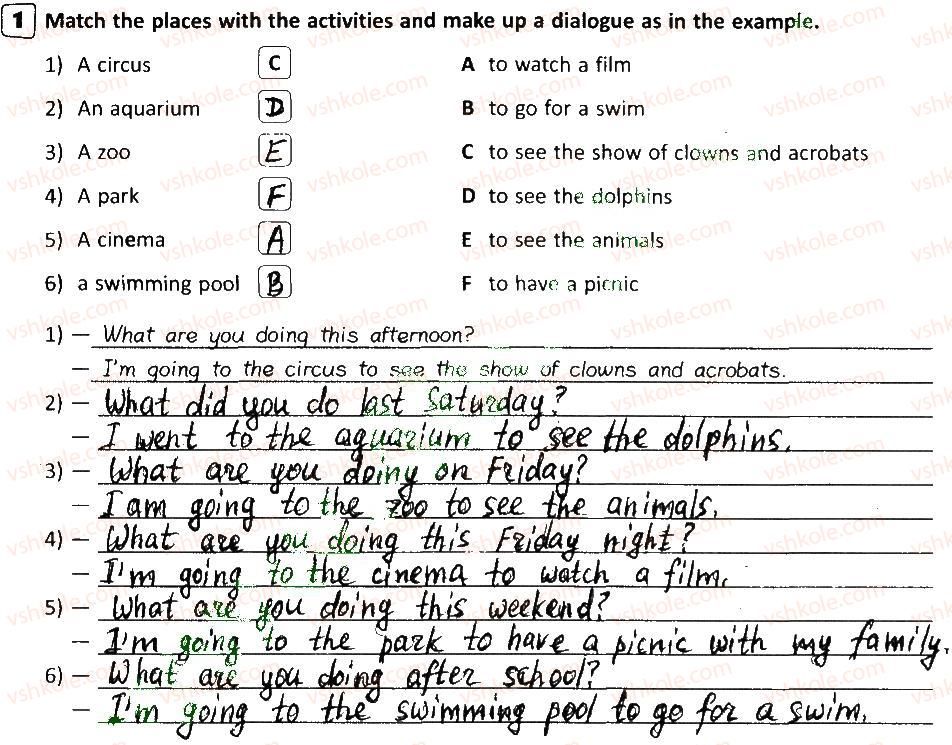 1 Match the places with the activities and make up a dialogue as in the example.
1) A circus C A to watch a film
2) An aquarium D B to go for a swim
3) A zoo E C to see the show of clowns and acrobats
4) A park F D to see the dolphins
5) A cinema A E to see the animals
6) a swimming pool B F to have a picnic
1) – What are you doing this afternoon?
– I'm going to the circus to see the show of clowns and acrobats.
2) – What did you do last Saturday?
– I went to the aquarium to see the dolphins.
3) – What are you doiny on Friday?
– I am going to the zoo to see the animals.
4) – What are you doing this Friday night?
– I'm going to the cinema to watch a film.
5) – What are you doing this weekend?
– I'm going to the park to have a picnic with my family.
6) – What are you doing after school?
– I'm going to the swimming pool to go for a swim.
vshkole.com